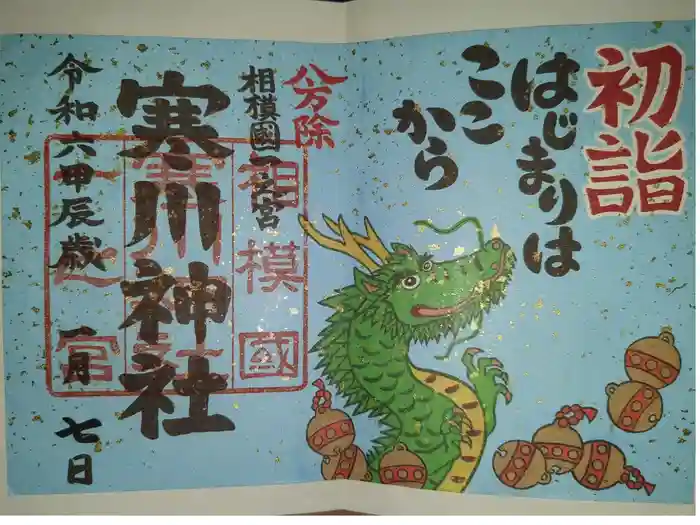 初詣
はじまりは
ここ
から
八方除
相模國一之宮
寒川神社
令和六甲辰歳 一月 七日
相模國
一之宮